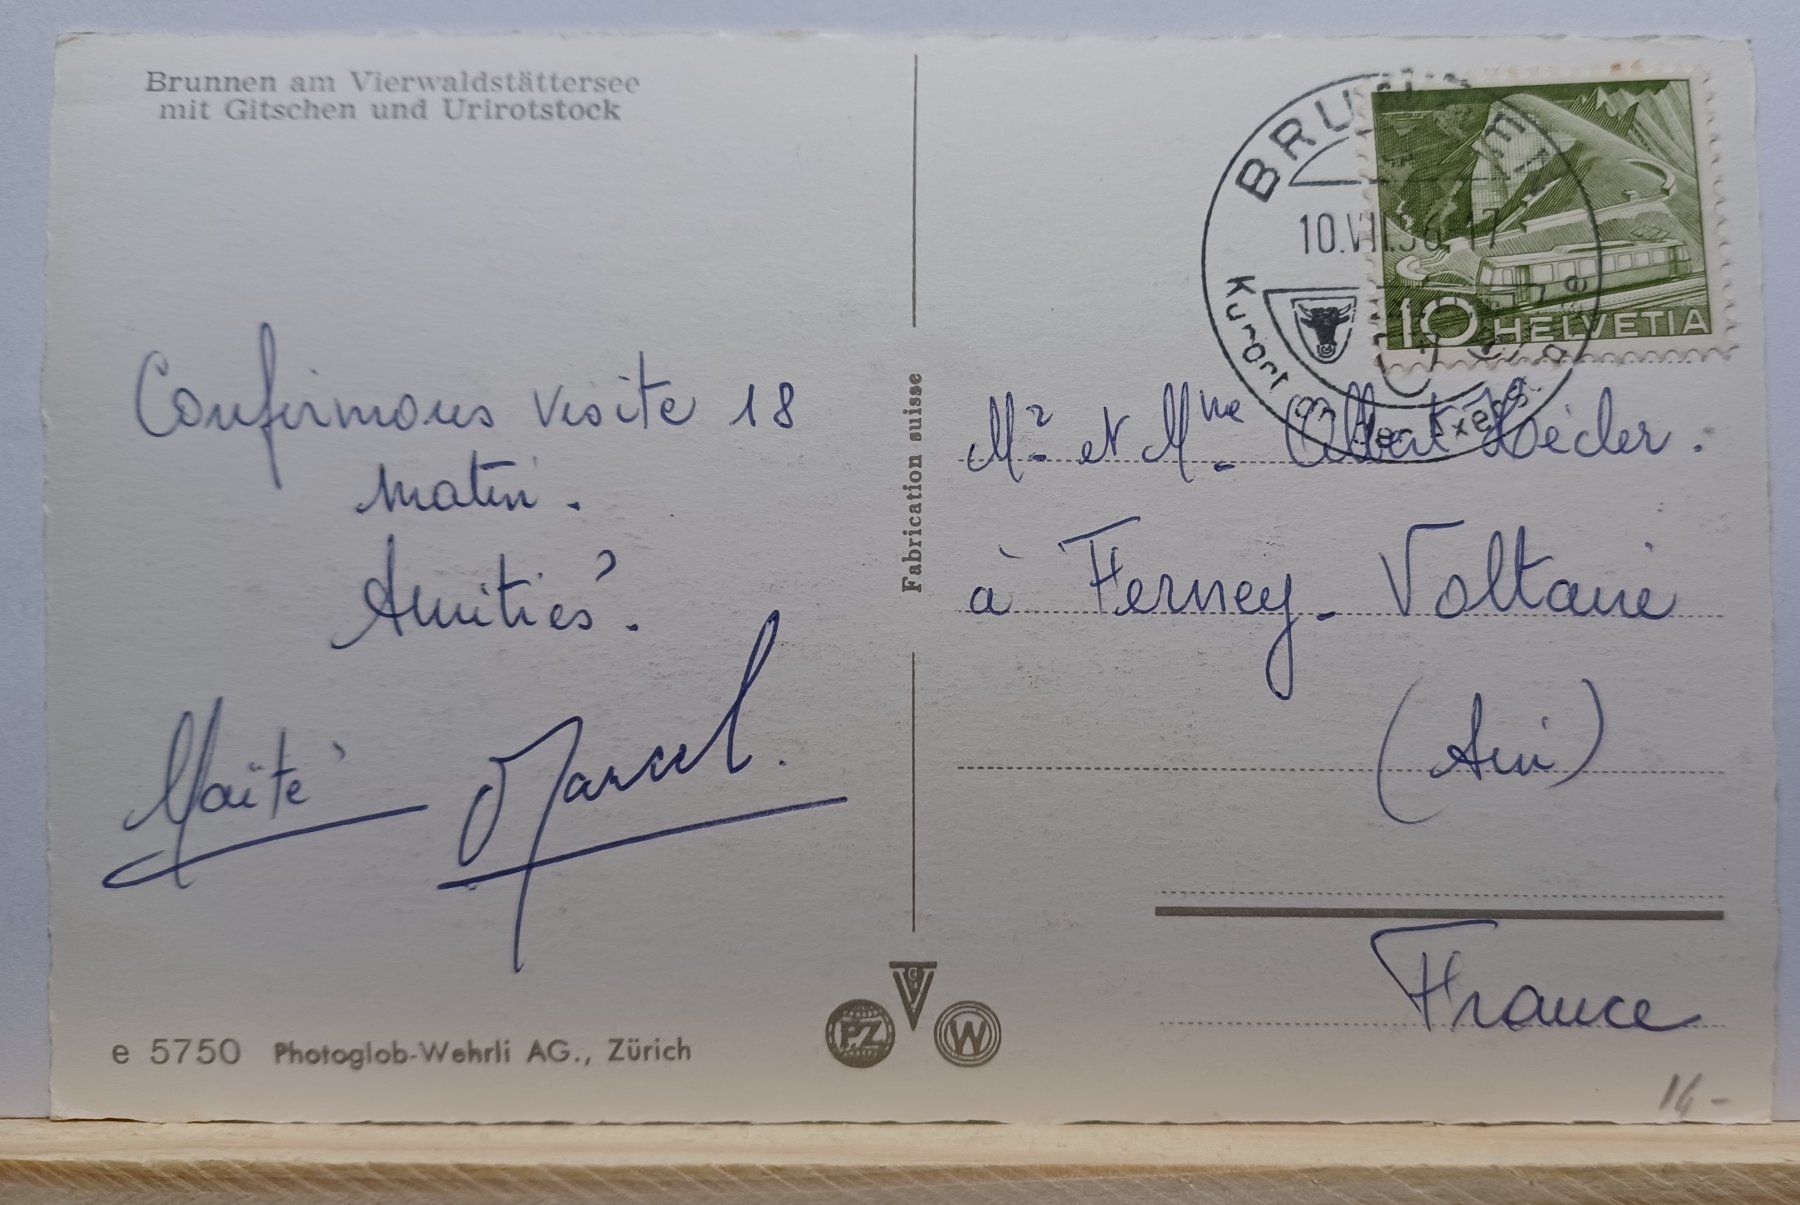 Brunnen am Vierwaldstättersee
mit Gitschen und Urirotstock
Confirmons visite 18
matin.
Amitiés.
Maïté Marcel.
e 5750 Photoglob-Wehrli AG., Zürich
Fabrication suisse
PZ
W
10.VII.56-17
Kurort an der
10 HELVETIA
Mr. et Mme. Albert Hécler.
à Ferney-Voltaire
(Ain)
France
14-